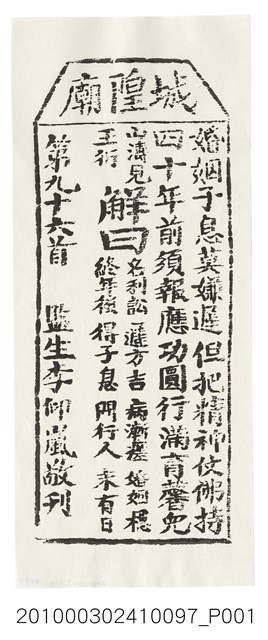 城隍廟
婚姻子息莫嫌遲但把精神使佛持
四十年前須報應功圓行滿育馨兒
山濤見
王衍
解曰
名利訟 遲方吉 病漸瘥 婚姻穩
終年後 得子息 問行人 來有日
第九十六首 監生李仰嵐敬刊
201000302410097_P001